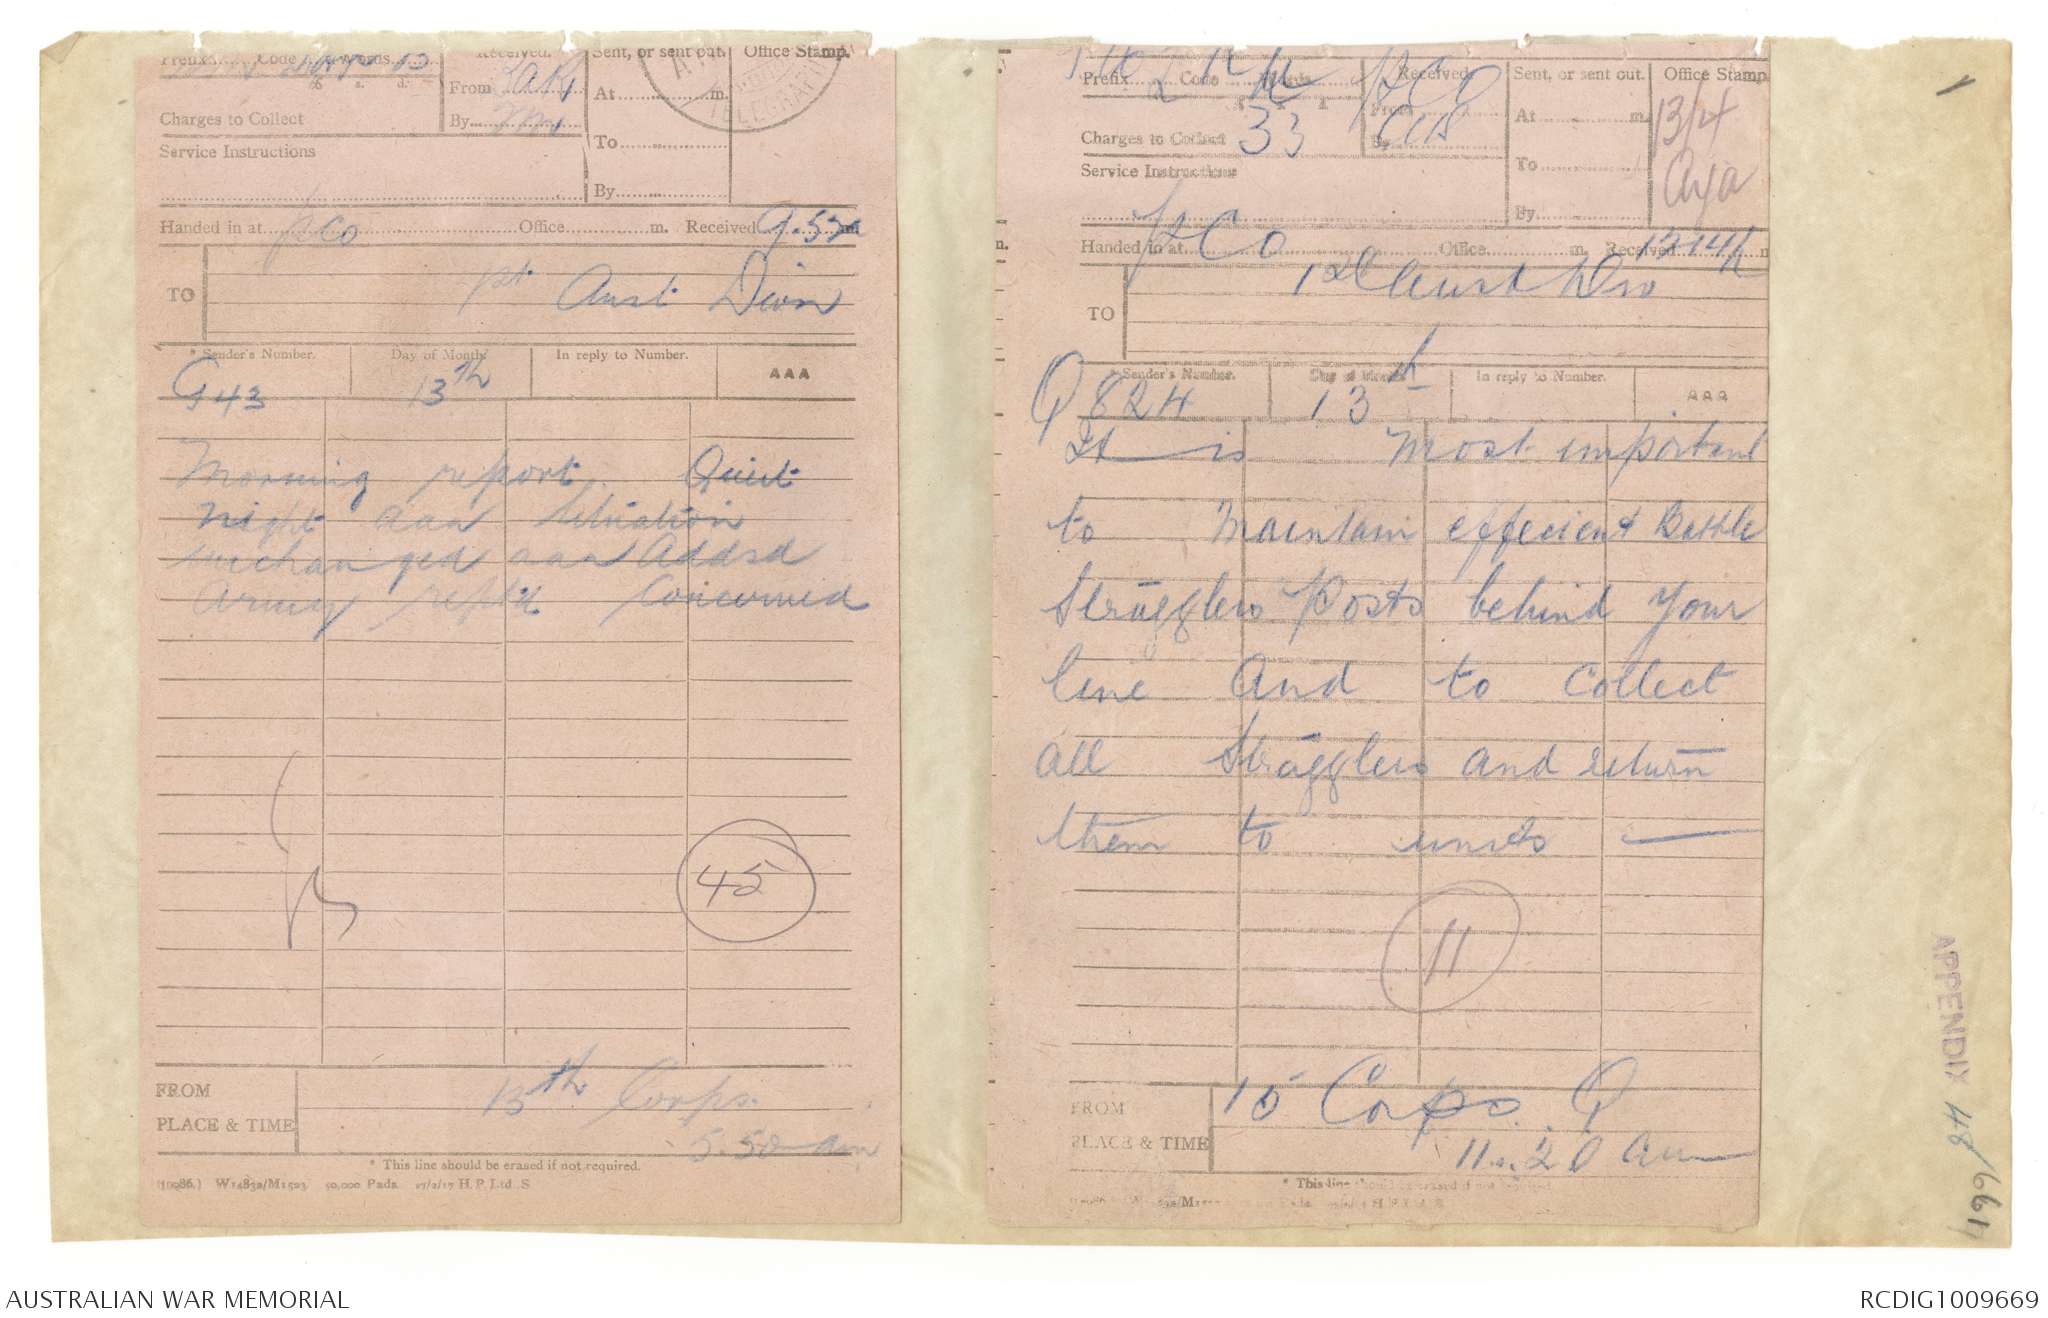 Prefix Code Words
Received. From
By
Sent, or sent out. At m. To By
Office Stamp.
TELEGRAPH
Charges to Collect
Service Instructions
Handed in at PCO Office m. Received 9.57a m
TO 1st Aust Divn
* Sender's Number. Day of Month In reply to Number. AAA
G43 13th
Morning report Quiet
night aaa Situation
unchanged aaa Addsd
Army reptd Concerned
45
FROM 15th Corps.
PLACE & TIME 5.50 am
* This line should be erased if not required.
(10986.) W14832/M1523 50,000 Pads 27/2/17 H.P.Ltd. S
Prefix Code
Received From
Sent, or sent out. At m. To By
Office Stamp.
13/4
Charges to Collect 33
Service Instructions
Handed in at PCO Office m. Received
TO 1st Aust Div
* Sender's Number. Day of Month In reply to Number. AAA
Q 824 13th
It is Most important
to Maintain effecient Battle
Stragglers Posts behind your
line And to Collect
all Stragglers and return
them to units
11
FROM 15 Corps. Q
PLACE & TIME 11.20 am
* This line
1
APPENDIX 48/
AUSTRALIAN WAR MEMORIAL
RCDIG1009669